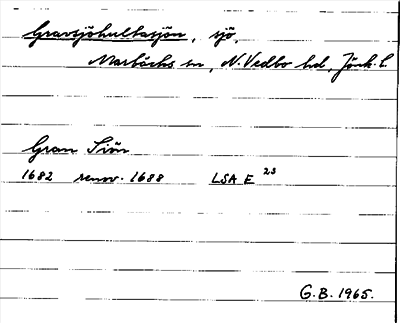 Gransjöhultasjön, sjö,
Marbäcks sn, N. Vedbo hd, Jönk. l.
Gran Siön
1682 renov. 1688 LSA E 23
G.B. 1965.